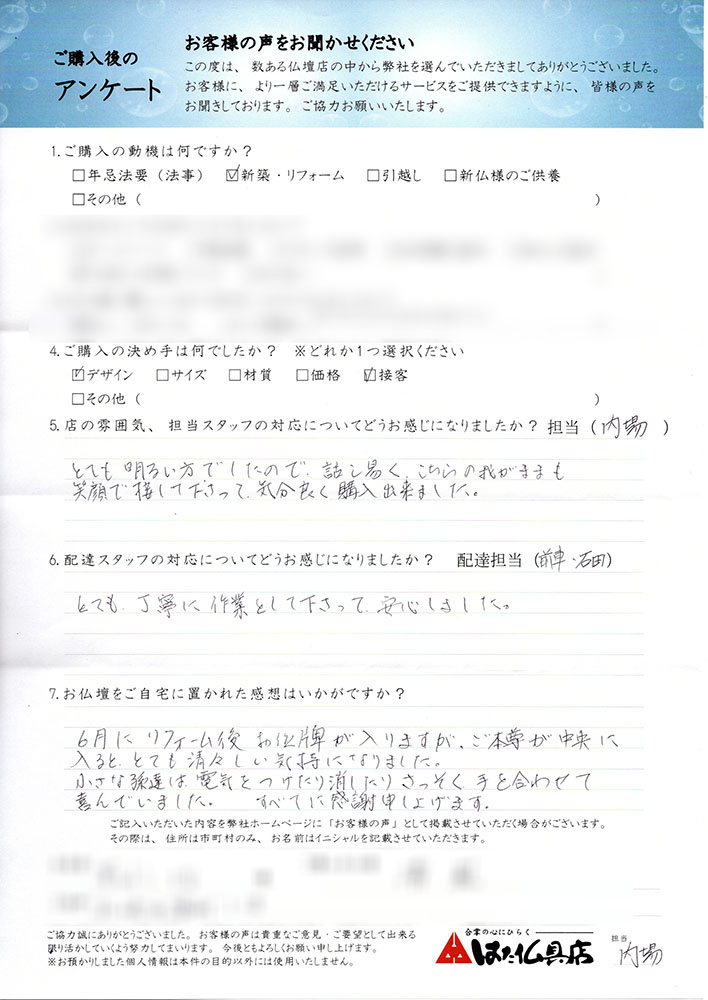 ご購入後の
アンケート
お客様の声をお聞かせください
この度は、数ある仏壇店の中から弊社を選んでいただきましてありがとうございました。
お客様に、より一層ご満足いただけるサービスをご提供できますように、皆様の声を
お聞きしております。ご協力お願いいたします。
1.ご購入の動機は何ですか？
□年忌法要（法事） ☑新築・リフォーム □引越し □新仏様のご供養
□その他（ ）
4.ご購入の決め手は何でしたか？ ※どれか1つ選択ください
☑デザイン □サイズ □材質 □価格 ☑接客
□その他（ ）
5.店の雰囲気、担当スタッフの対応についてどうお感じになりましたか？ 担当（内場）
とても明るい方でしたので、話し易く、こちらの我がままも
笑顔で接して下さって、気分良く購入出来ました。
6.配達スタッフの対応についてどうお感じになりましたか？ 配達担当（前車・石田）
とても、丁寧に作業をして下さって、安心しました。
7.お仏壇をご自宅に置かれた感想はいかがですか？
6月にリフォーム後お位牌が入りますが、ご本尊が中央に
入ると、とても清々しい気持になりました。
小さな孫達は、電気をつけたり消したりさっそく手を合わせて
喜んでいました。 すべてに感謝申し上げます。
ご記入いただいた内容を弊社ホームページに「お客様の声」として掲載させていただく場合がございます。
その際は、住所は市町村のみ、お名前はイニシャルを記載させていただきます。
ご協力誠にありがとうございました。お客様の声は貴重なご意見・ご要望として出来る
限り活かしていくよう努力してまいります。今後ともよろしくお願い申し上げます。
※お預かりしました個人情報は本件の目的以外には使用いたしません。
合掌の心にひらく
はた仏具店
担当
内場